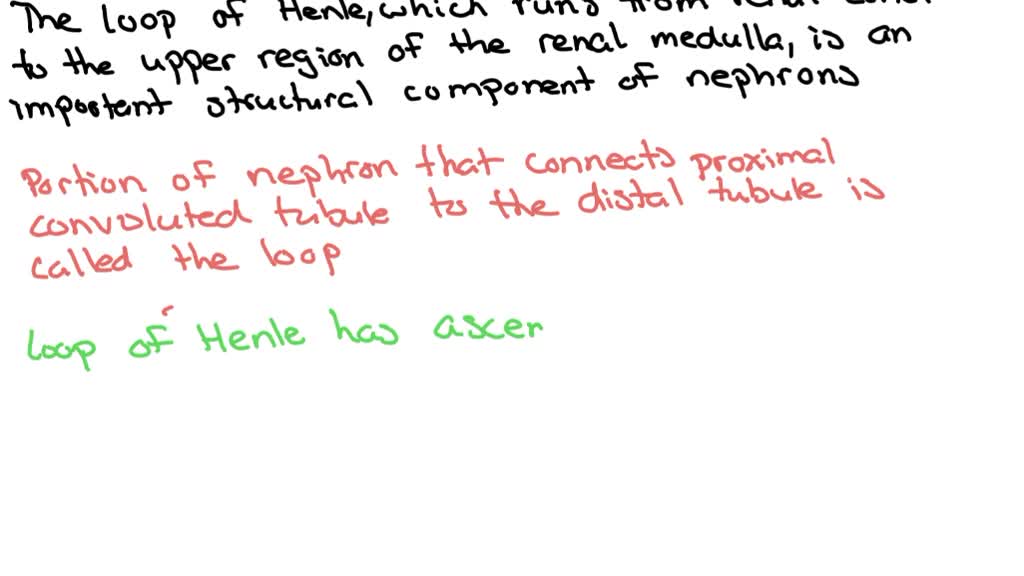 The loop of Henle, which runs from renal
to the upper region of the renal medulla, is an
important structural component of nephrons
Portion of nephron that connects proximal
convoluted tubule to the distal tubule is
called the loop
loop of Henle has ascer